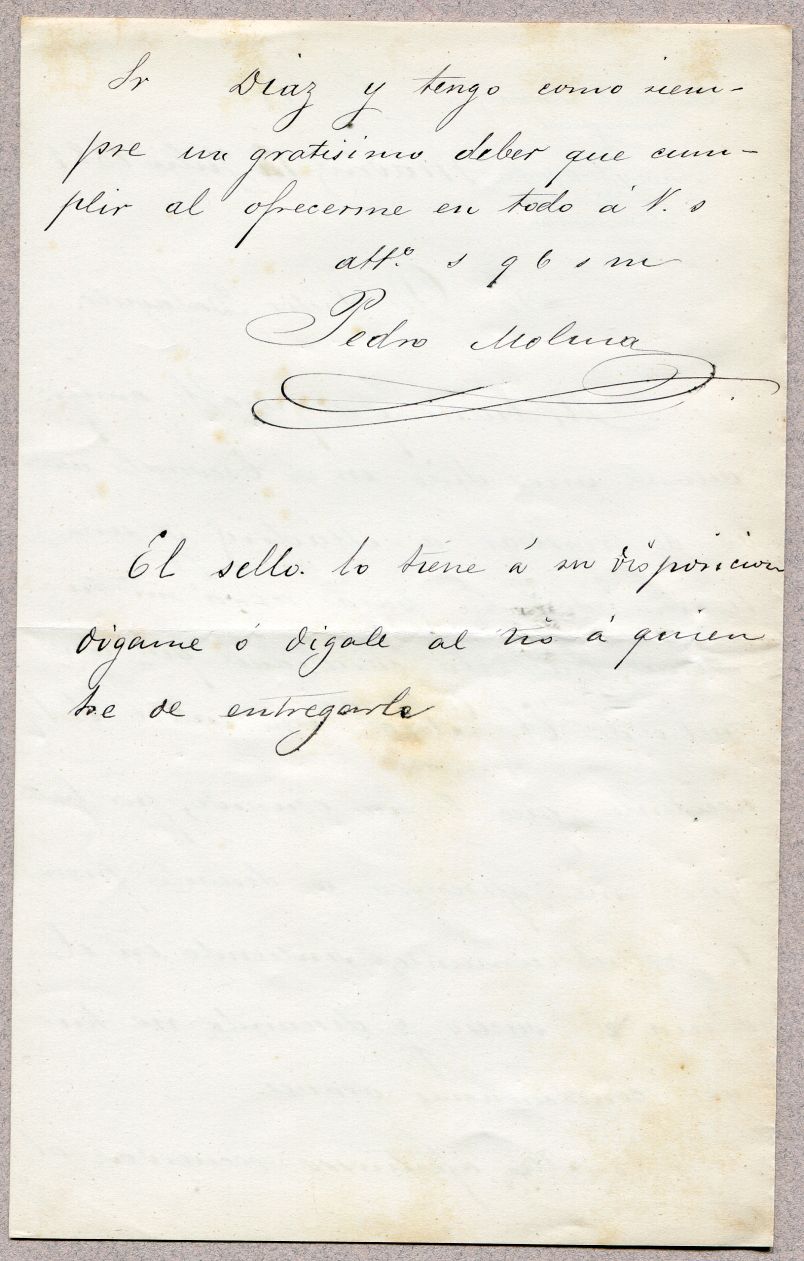 Sr Diaz y tengo como siem-
pre un gratisimo deber que cum-
plir al ofrecerme en todo á V. s
att.º s q b s m
Pedro Molina
El sello lo tiene á su disposicion
digame ó digale al tio á quien
he de entregarlo